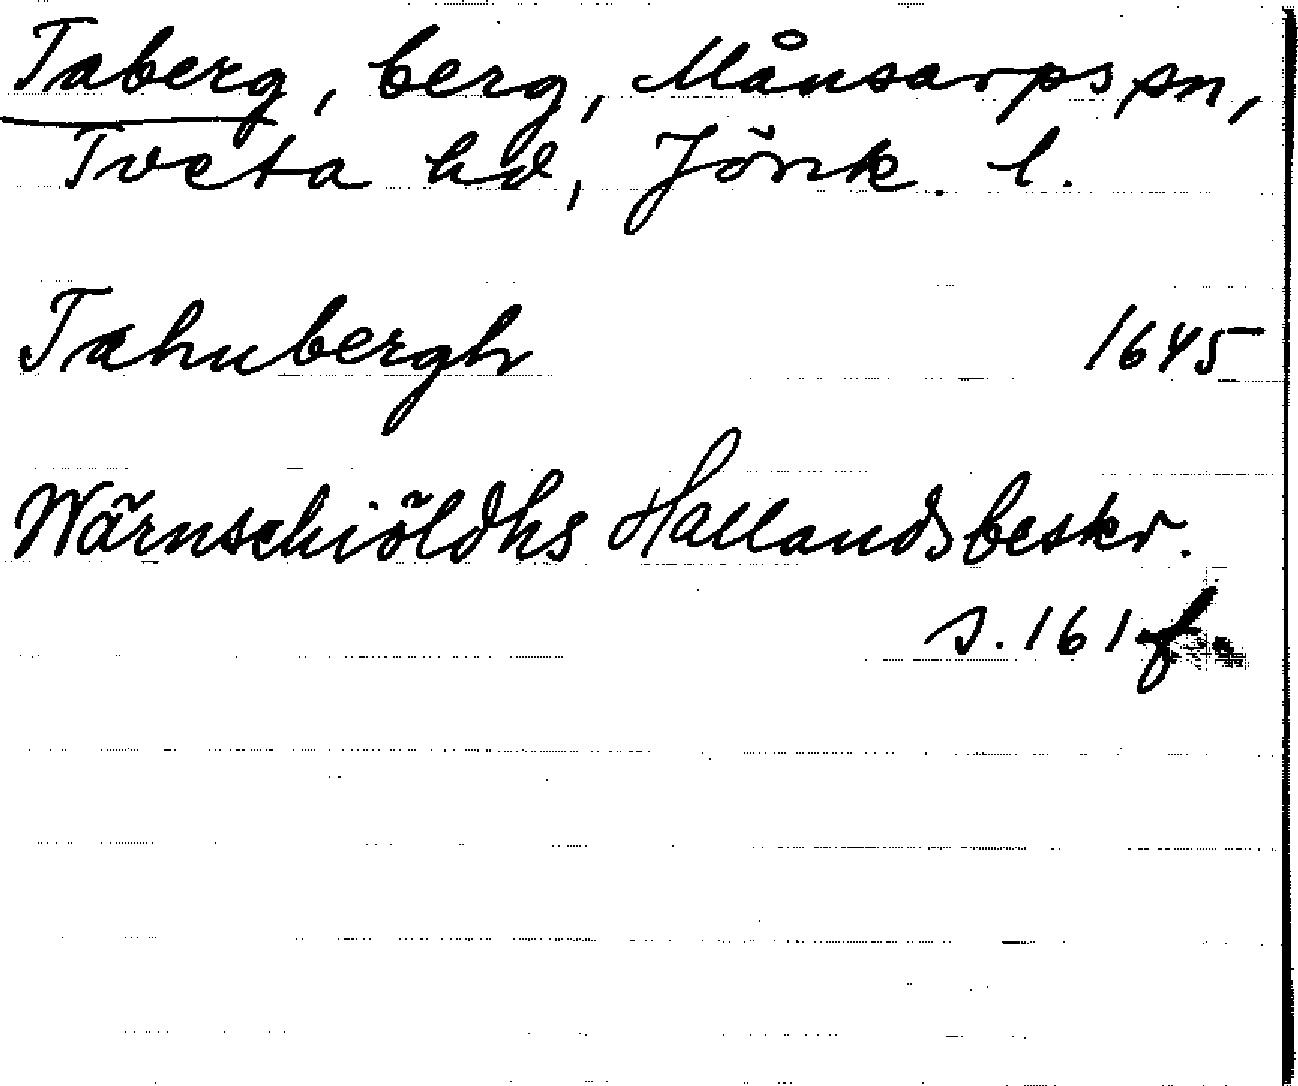 Taberg, berg, Månsarps sn,
Tveta hd, Jönk. l.
Tahubergh 1645
Wärnschiöldhs Hallandsbeskr.
s. 161 f.